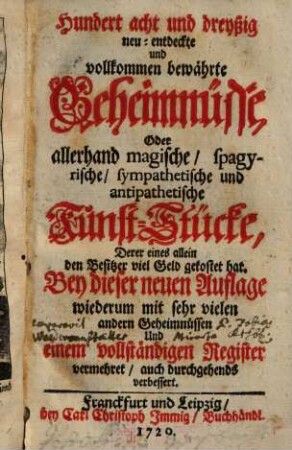 Hundert acht und dreyßig
neu-entdeckte
und
vollkommen bewährte
Geheimnüsse,
Oder
allerhand magische/ spagy-
rische/ sympathetische und
antipathetische
Kunst-Stücke,
Derer eines allein
den Besitzer viel Geld gekostet hat.
Bey dieser neuen Auflage
wiederum mit sehr vielen
andern Geheimnüssen
Und
einem vollständigen Register
vermehret/ auch durchgehends
verbessert.
Franckfurt und Leipzig/
bey Carl Christoph Immig/ Buchhändl.
1720.